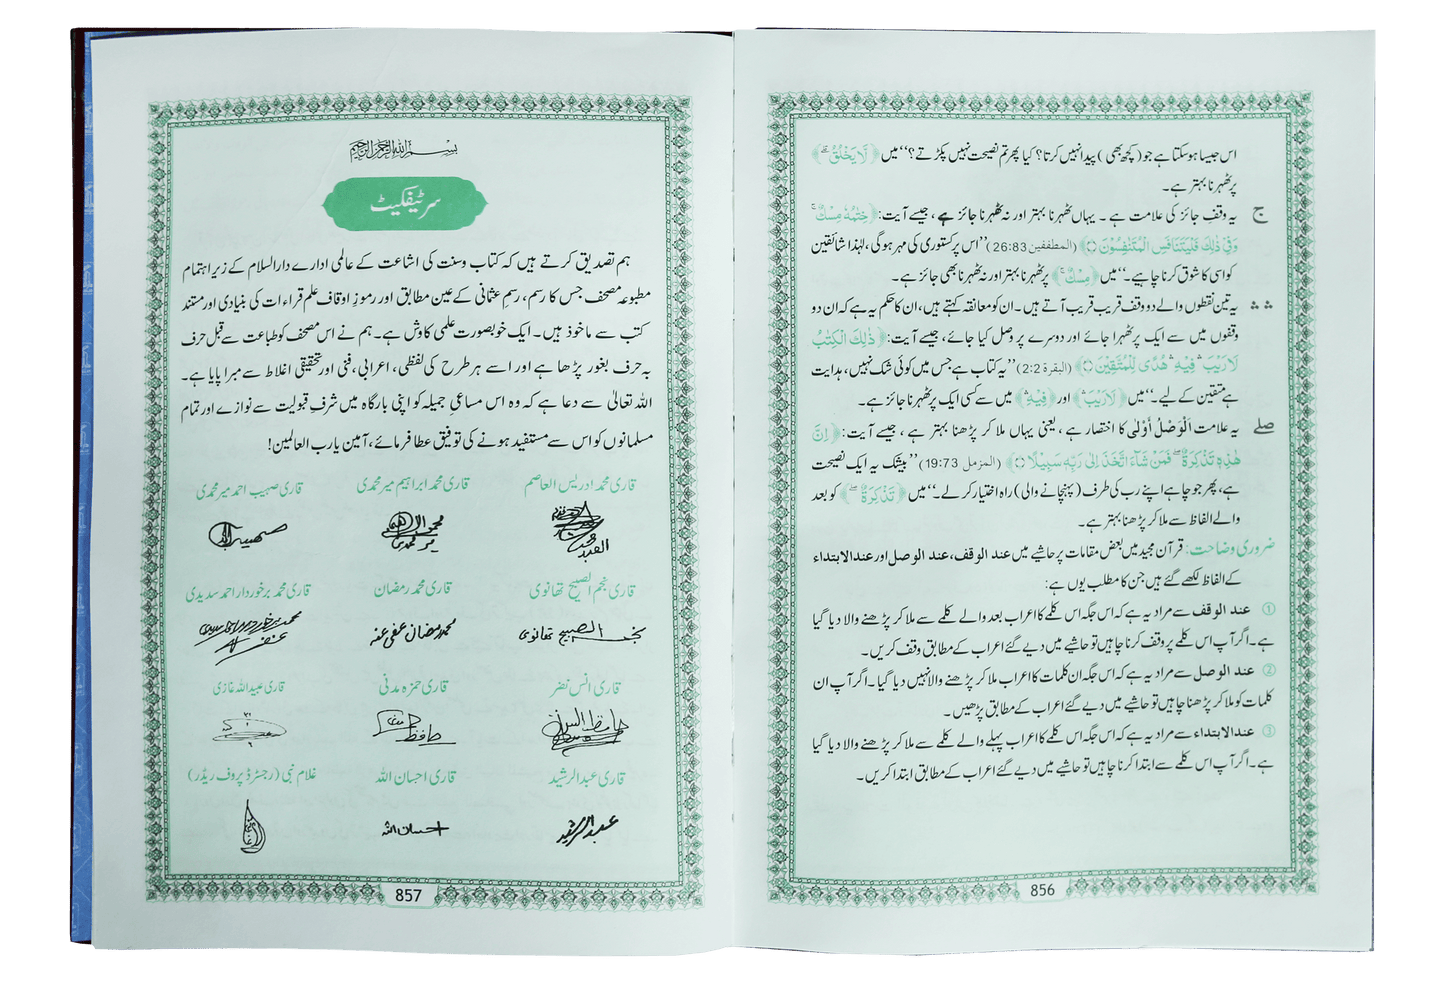 اس جیسا ہو سکتا ہے جو (کچھ بھی) پیدا نہیں کرتا؟ کیا پھر تم نصیحت نہیں پکڑتے؟‘‘ میں ﴿لَا يَخْلُقُ ؕ﴾
پر ٹھہرنا بہتر ہے۔
ج یہ وقف جائز کی علامت ہے ۔ یہاں ٹھہرنا بہتر اور نہ ٹھہرنا جائز ہے ، جیسے آیت: ﴿خِتٰمُهٗ مِسْكٌ ۚ
وَفِيْ ذٰلِكَ فَلْيَتَنَافَسِ الْمُتَنٰفِسُوْنَ ۝﴾ (المطففین 26:83) ’’اس پر کستوری کی مہر ہوگی، لہٰذا شائقین
کو اسی کا شوق کرنا چاہیے۔‘‘ میں ﴿مِسْكٌ ۚ﴾ پر ٹھہرنا بہتر اور نہ ٹھہرنا بھی جائز ہے۔
∴ ∴ یہ تین نقطوں والے دو وقف قریب قریب آتے ہیں۔ ان کو معانقہ کہتے ہیں، ان کا حکم یہ ہے کہ ان دو
وقفوں میں سے ایک پر ٹھہرا جائے اور دوسرے پر وصل کیا جائے، جیسے آیت: ﴿ذٰلِكَ الْكِتٰبُ
لَا رَيْبَ ۛ فِيْهِ ۛ هُدًى لِّلْمُتَّقِيْنَ ۝﴾ (البقرة 2:2) ’’یہ کتاب ہے جس میں کوئی شک نہیں، ہدایت
ہے متقین کے لیے۔‘‘ میں ﴿لَا رَيْبَ ۛ﴾ اور ﴿فِيْهِ ۛ﴾ میں سے کسی ایک پر ٹھہرنا جائز ہے۔
صلے یہ علامت اَلْوَصْلُ أَوْلٰی کا اختصار ہے ، یعنی یہاں ملا کر پڑھنا بہتر ہے ، جیسے آیت: ﴿اِنَّ
هٰذِهٖ تَذْكِرَةٌ ۖ فَمَنْ شَآءَ اتَّخَذَ اِلٰى رَبِّهٖ سَبِيْلًا ۝﴾ (المزمل 19:73) ’’بیشک یہ ایک نصیحت
ہے، پھر جو چاہے اپنے رب کی طرف (پہنچانے والی) راہ اختیار کر لے۔‘‘ میں ﴿تَذْكِرَةٌ ۖ﴾ کو بعد
والے الفاظ سے ملا کر پڑھنا بہتر ہے۔
ضروری وضاحت: قرآن مجید میں بعض مقامات پر حاشیے میں عند الوقف، عند الوصل اور عند الابتداء
کے الفاظ لکھے گئے ہیں جن کا مطلب یوں ہے:
① عند الوقف سے مراد یہ ہے کہ اس جگہ اس کلمے کا اعراب بعد والے کلمے سے ملا کر پڑھنے والا دیا گیا
ہے۔ اگر آپ اس کلمے پر وقف کرنا چاہیں تو حاشیے میں دیے گئے اعراب کے مطابق وقف کریں۔
② عند الوصل سے مراد یہ ہے کہ اس جگہ ان کلمات کا اعراب ملا کر پڑھنے والا نہیں دیا گیا۔ اگر آپ ان
کلمات کو ملا کر پڑھنا چاہیں تو حاشیے میں دیے گئے اعراب کے مطابق پڑھیں۔
③ عند الابتداء سے مراد یہ ہے کہ اس جگہ اس کلمے کا اعراب پہلے والے کلمے سے ملا کر پڑھنے والا دیا گیا
ہے۔ اگر آپ اس کلمے سے ابتدا کرنا چاہیں تو حاشیے میں دیے گئے اعراب کے مطابق ابتدا کریں۔
856
بسم الله الرحمن الرحيم
سرٹیفکیٹ
ہم تصدیق کرتے ہیں کہ کتاب وسنت کی اشاعت کے عالمی ادارے دارالسلام کے زیر اہتمام
مطبوعہ مصحف جس کا رسم، رسمِ عثمانی کے عین مطابق اور رموزِ اوقاف علم قراءات کی بنیادی اور مستند
کتب سے ماخوذ ہیں۔ ایک خوبصورت علمی کاوش ہے۔ ہم نے اس مصحف کو طباعت سے قبل حرف
بہ حرف بغور پڑھا ہے اور اسے ہر طرح کی لفظی، اعرابی، فنی اور تحقیقی اغلاط سے مبرا پایا ہے۔
اللہ تعالیٰ سے دعا ہے کہ وہ اس مساعیِ جمیلہ کو اپنی بارگاہ میں شرفِ قبولیت سے نوازے اور تمام
مسلمانوں کو اس سے مستفید ہونے کی توفیق عطا فرمائے، آمین یا رب العالمین!
قاری محمد ادریس العاصم قاری محمد ابراہیم میر محمدی قاری صہیب احمد میر محمدی
قاری نجم الصبیح تھانوی قاری محمد رمضان قاری محمد برخوردار احمد سدیدی
نجم الصبیح تھانوی محمد رمضان عفی عنہ
قاری انس نضر قاری حمزہ مدنی قاری عبیداللہ غازی
قاری عبدالرشید قاری احسان اللہ غلام نبی (رجسٹرڈ پروف ریڈر)
عبدالرشید احسان اللہ
857